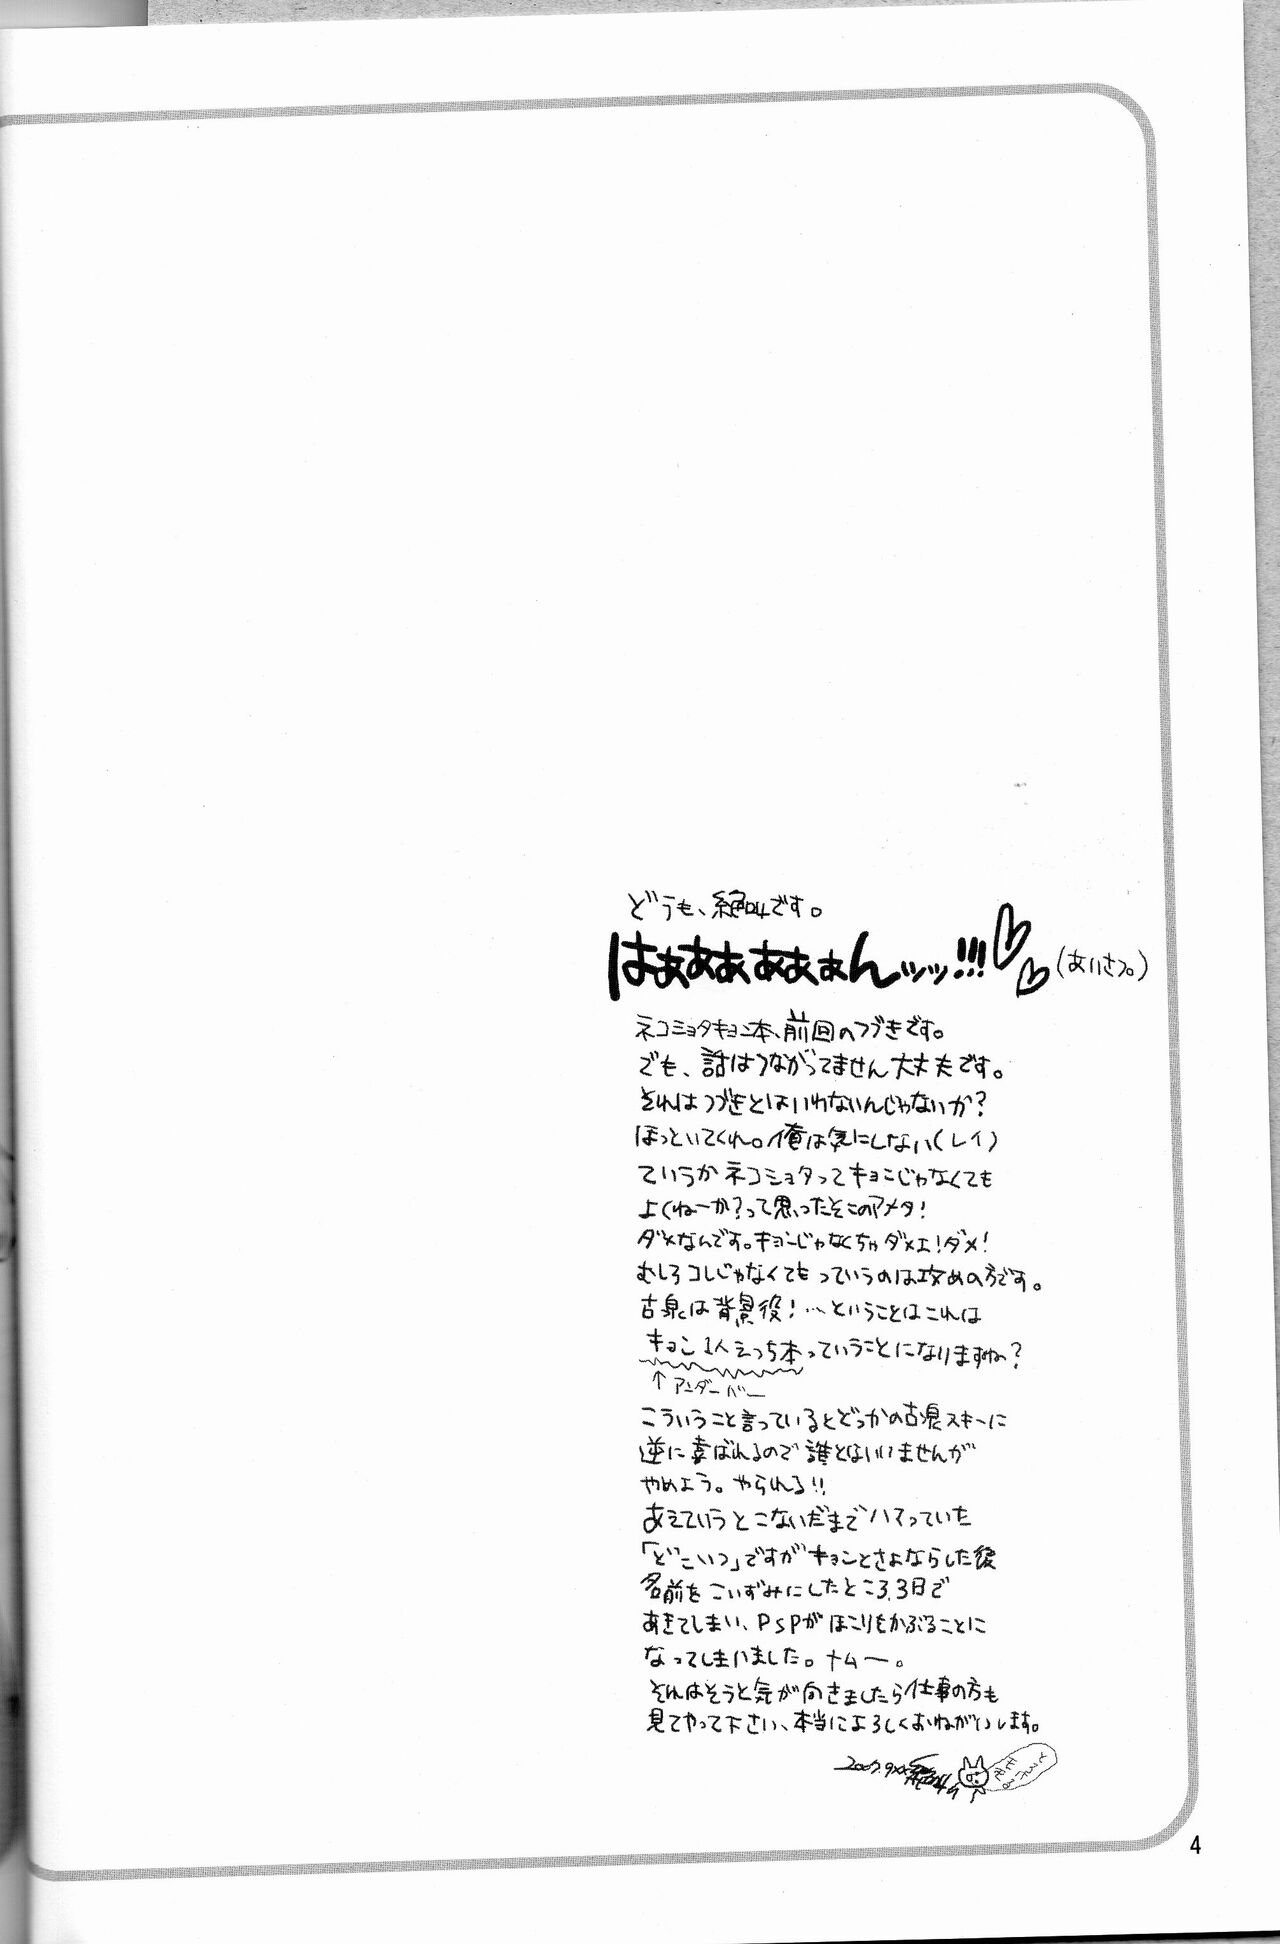 どうも、絶叫です。
はぁぁあぁぁぁぁんッッ!!! (あいさつ。)
ネコショタキョン本、前回のつづきです。
でも、話はつながってません大丈夫です。
それはつづきとはいわないんじゃないか?
ほっといてくれ。俺は気にしない(レイ)
ていうかネコショタってキョンじゃなくても
よくねーか?って思ったそこのアメタ!
ダメなんです。キョンじゃなくちゃダメェ!ダメ!
むしろコレじゃなくてもっていうのは攻めの方です。
古泉は背景役!…ということはこれは
キョン1人えっち本っていうことになりますね?
↑アンダーバー
こういうこと言っているとどっかの古泉スキーに
逆に喜ばれるので誰とはいいませんが
やめよう。やられる!!
あえていうとこないだまでハマっていた
「どこいつ」ですがキョンとさよならした後
名前をこいずみにしたところ、3日で
あきてしまい、PSPがほこりをかぶることに
なってしまいました。ナムー。
それはそうと気が向きましたら仕事の方も
見てやって下さい、本当によろしくおねがいします。
2007.9.xx
4